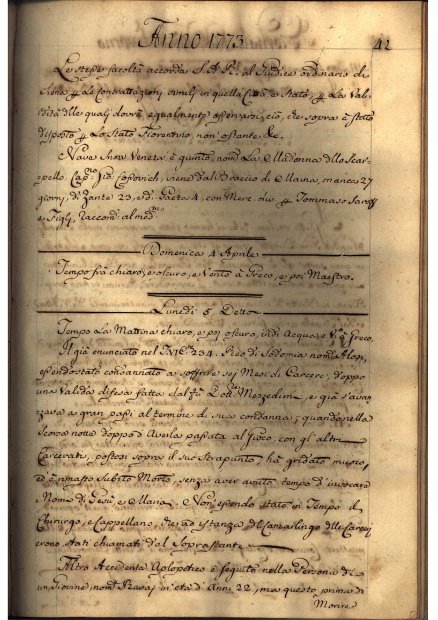 Anno 1773. 41
Le stesse facoltà accorda S. A. R. al Giudice ordinario di
Siena p. le Contrattazioni civili in quella Città, e Stato, p. la Vali-
dità delle quali dovrà egualmente osservarsi, ciò, che sopra è stato
disposto p. lo Stato Fiorentino non ostante &c.
Nave Snow Veneta è giunto, nom.ta La Madonna dello Scar-
pello, Cap.no Gio. viene dal Braccio di Maina, manca 27
giorni, di Zante 23, e di Gaeta 4, con Merc. div. p. Tommaso
e Figlj, Raccom. al med.mo
Domenica 4 Aprile
Tempo frà chiaro, e oscuro, e Vento à Greco, e poi Maestro.
Lunedì 5. Detto
Tempo la Mattina chiaro, e poi oscuro, indi Acqua, e V.to Greco.
Il già enunciato nel 234. Reo di Sodomia nom.to
essendo stato condannato a soffrire sei Mesi di Carcere, doppo
una Valida difesa fatta dal Dott.re Mezzedimi, e già s'avan-
zava a gran passi al termine di sua condanna; quando nella
scorsa notte doppo d'averla passata al Gioco, con gl'altri
Carcerati, postosi sopra il suo Strapunto, hà gridato muojo,
ed è rimasto subito Morto, senza aver avuto tempo d'invocare
i Nomi di Gesù, e Maria. Non essendo stato in Tempo il
Chirurgo, e Cappellano, che ad istanza del Camarlingo delle Carceri
erono stati chiamati dal Soprastante.
Altro Accidente Apopletico è seguito nella Persona di
un Giovine nom.to in età d'Anni 22, ma questo prima di
Morire